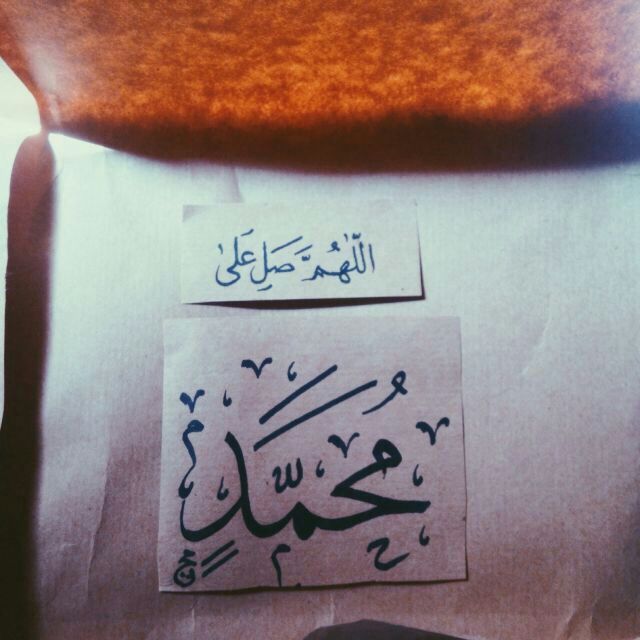 اللّٰهُمَّ صَلِ عَلىٰ
مُحَمَّدٍ